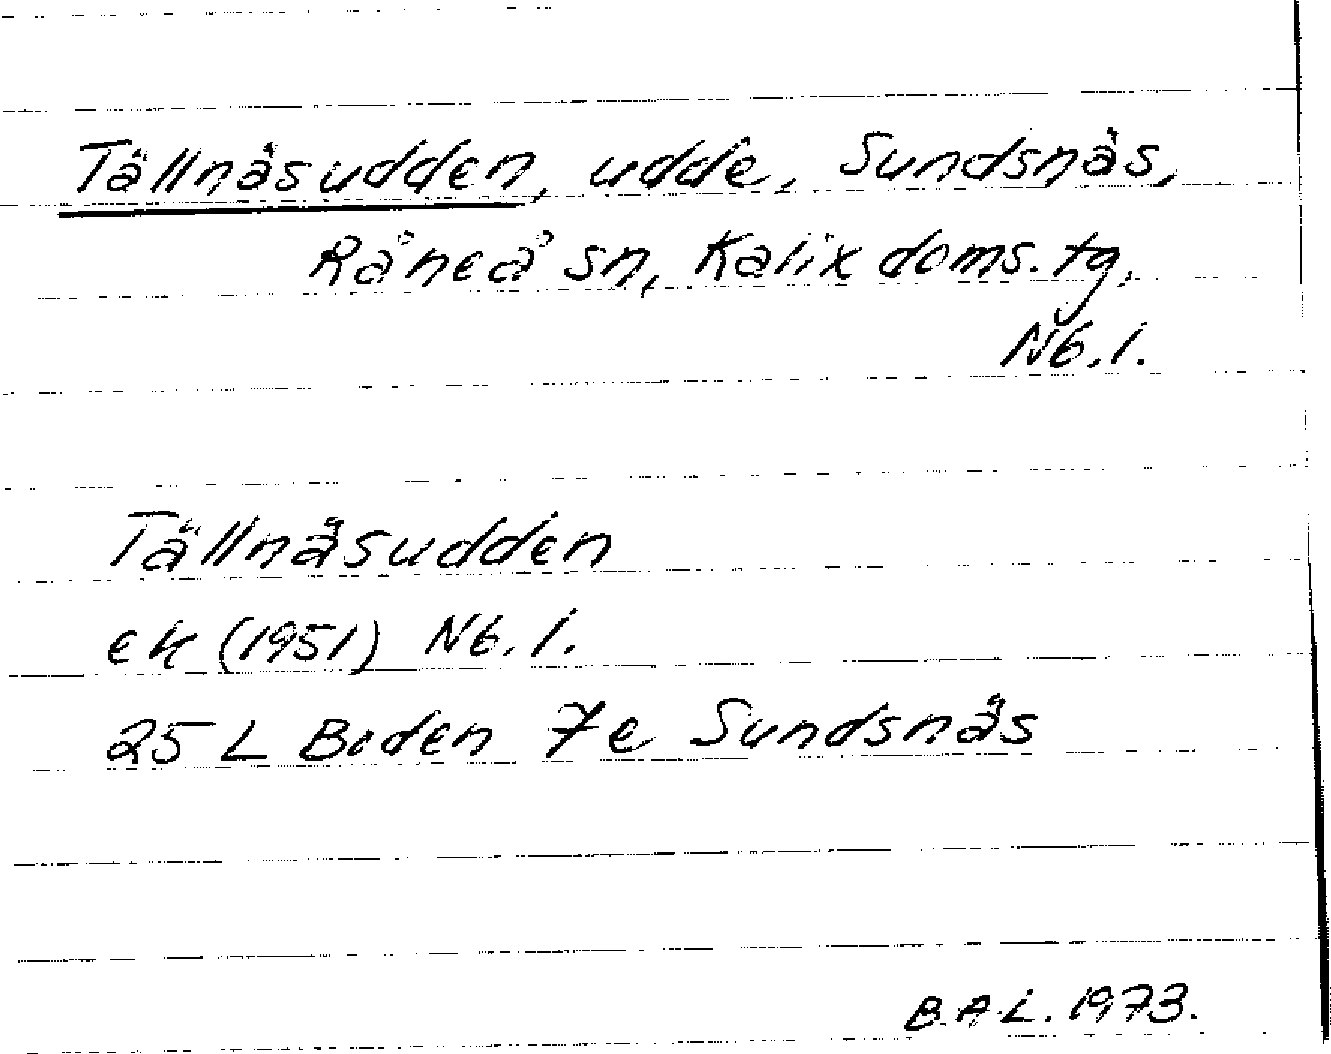 Tällnäsudden, udde, Sundsnäs,
Råneå sn, Kalix doms. tg.
Nb. l.
Tällnäsudden
ek (1951) Nb. l.
25 L Boden 7e Sundsnäs
B.A.L. 1973.